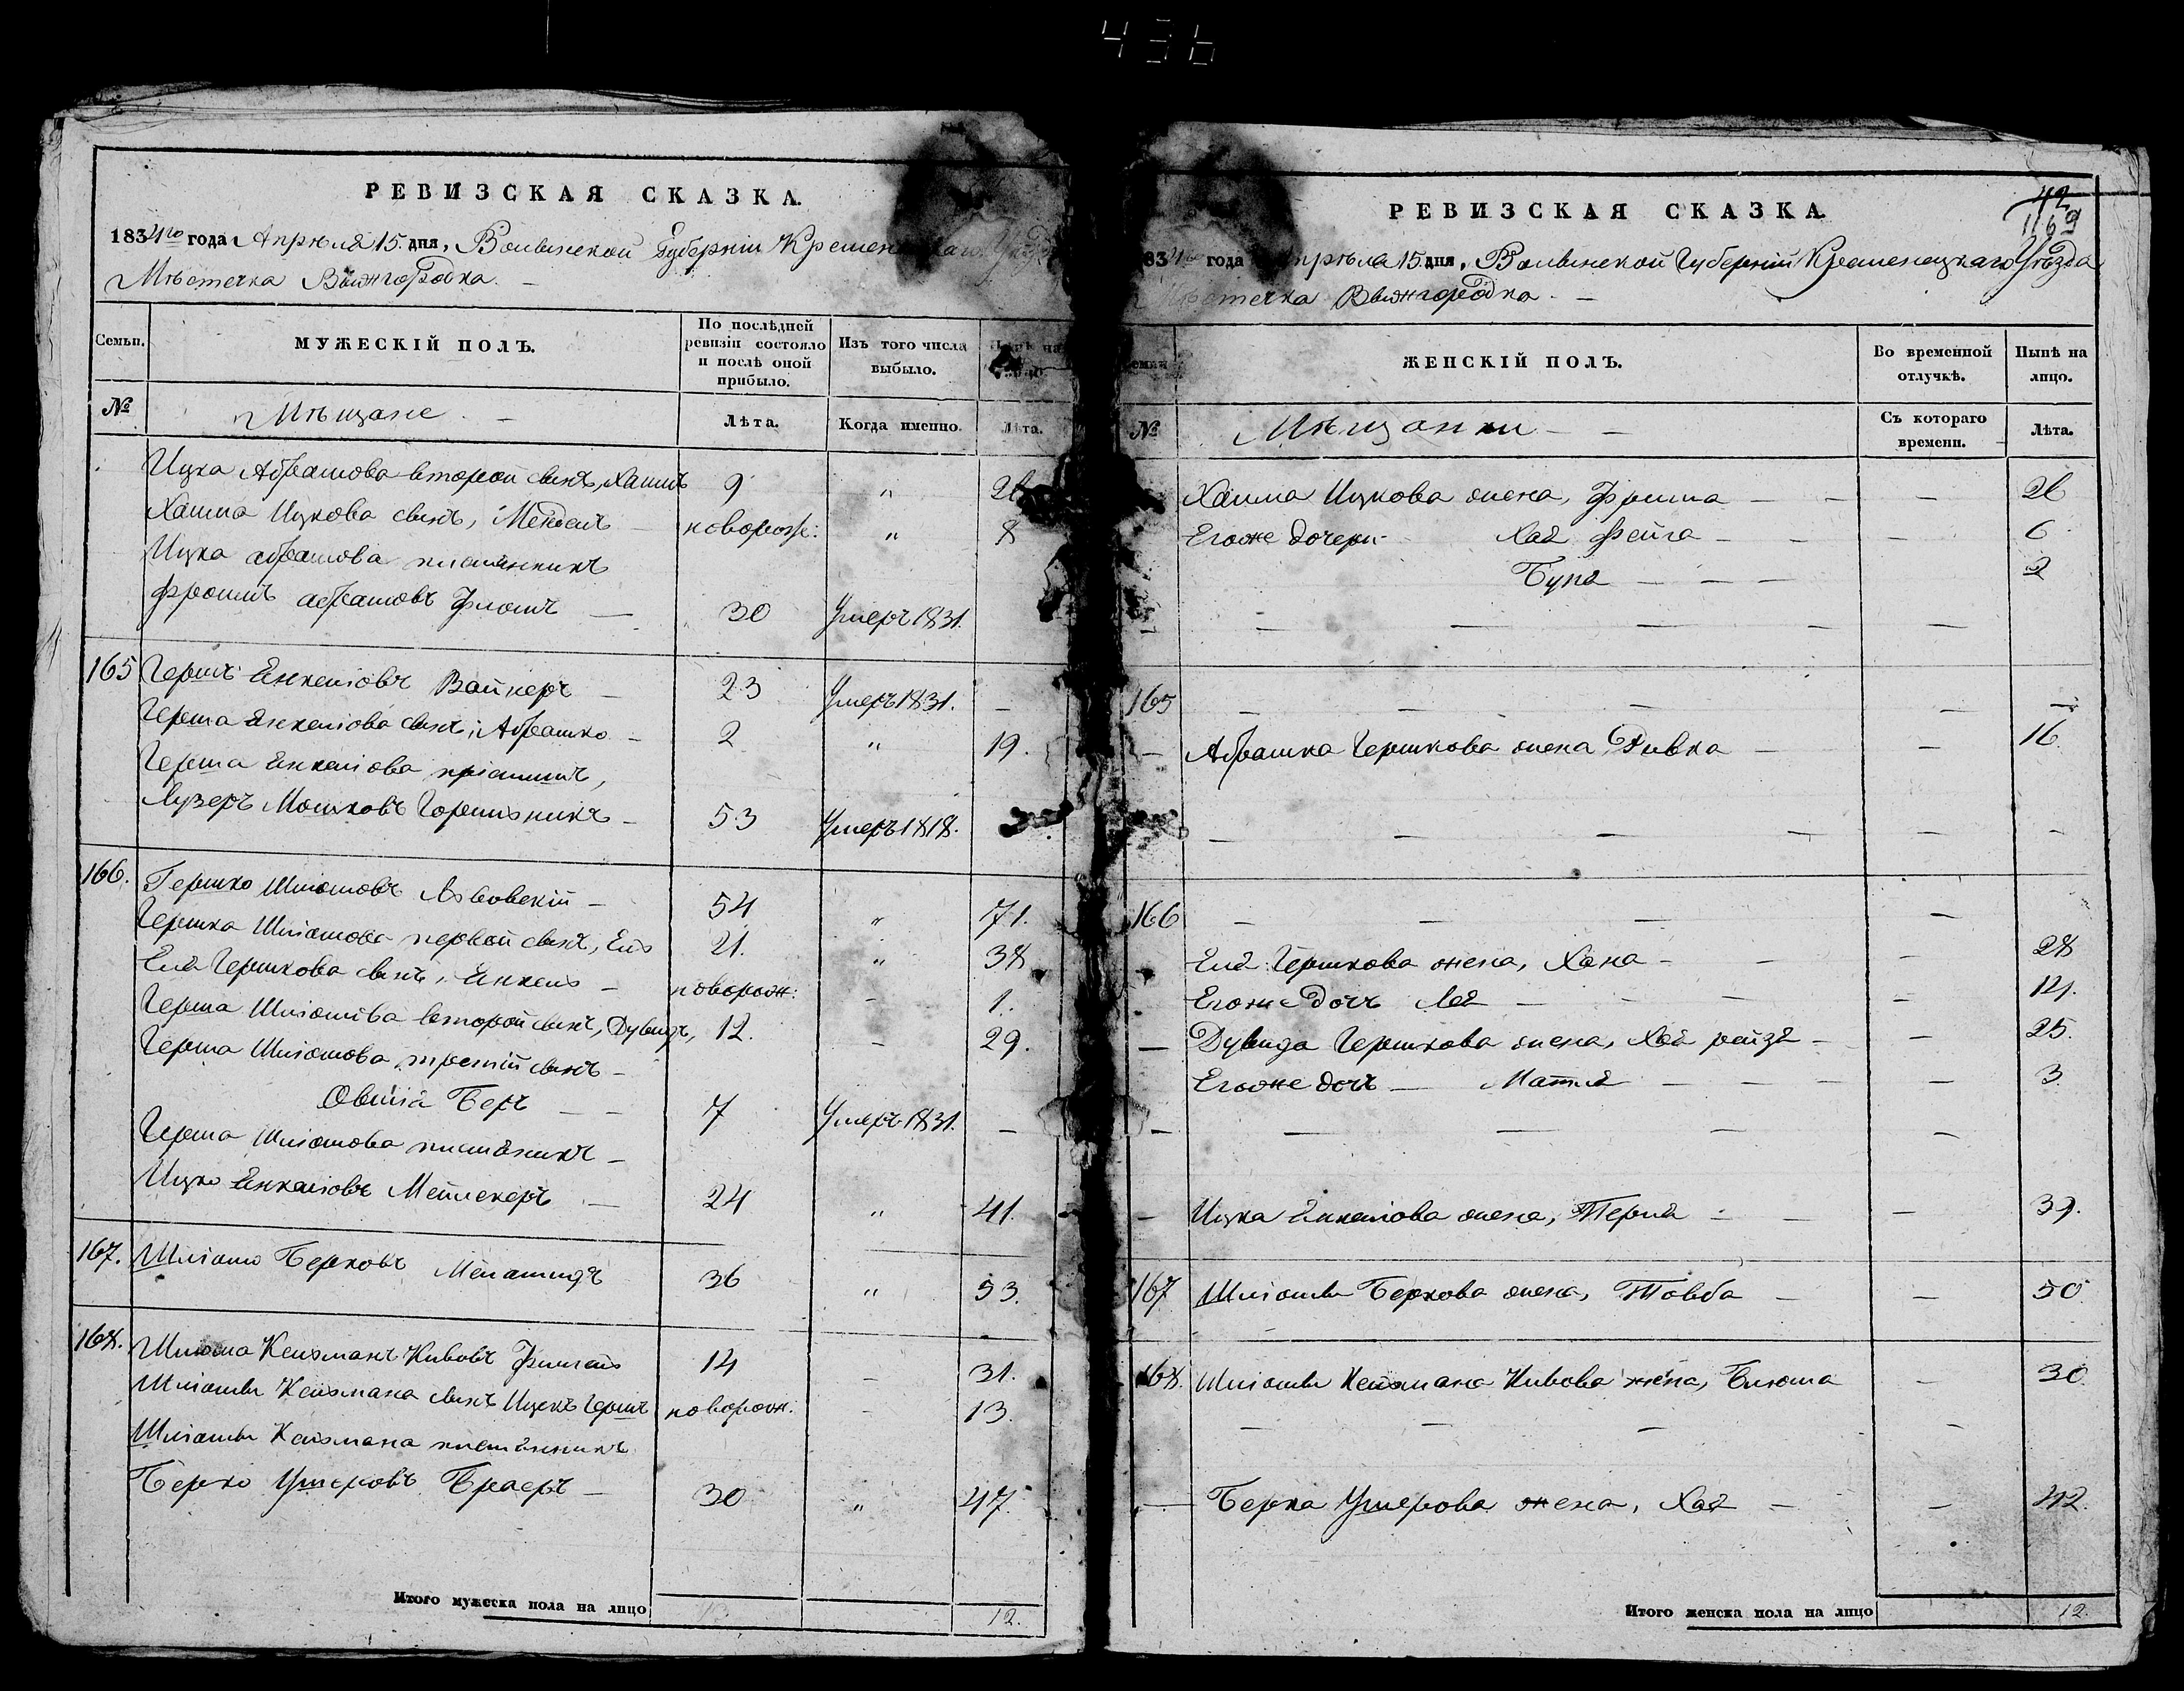 436
РЕВИЗСКАЯ СКАЗКА.
1834го года Апрѣля 15. дня, Волынской Губерніи
Мѣстечка Вышгородка. –
Семьи.
МУЖЕСКІЙ ПОЛЪ.
По послѣдней ревизіи состояло и послѣ оной прибыло.
Изъ того числа выбыло.
№
Мѣщане. –
Лѣта.
Когда именно.
Лѣта.
Ицка Абрамова второй сынъ, Хаимъ 9 "
Хаима Ицкова сынъ, Мендель новорож: " 8
Ицка абрамова племянникъ
Фроимъ абрамовъ — 30 Умеръ 1831.
165 Гершъ Енкеліовъ Вайнеръ – 23 Умеръ 1831. –
Герша Енкеліова сынъ, Абрашко – 2 " 19.
Герша Енкеліова пріймитъ,
Лузеръ Мошковъ – 53 Умеръ 1818.
166. Гершко Шліомовъ – 54 " 71.
Гершка Шліомова первой сынъ, Ель 21. " 38
Еля Гершкова сынъ, Енкель – новорож: – 1.
Герша Шліомова второй сынъ, Дувидъ, 12. – 29.
Герша Шліомова третій сынъ –
Овшія Беръ — 7 Умеръ 1831. –
Герша Шліомова племяникъ –
Ицко Енкеліовъ — 24 " 41.
167. Шліомо Берковъ 36 " 53.
168. Шліома Кельманъ Кивовъ 14 – 31.
Шліомы Кельмана сынъ Ицекъ Гершъ новорож. – 13.
Шліомы Кельмана племянникъ
Берко Ушеровъ Браеръ – 30 " 47.
Итого мужеска пола на лицо 12.
42
1169
РЕВИЗСКАЯ СКАЗКА.
года Апрѣля 15 дня, Волынской Губерніи Кременецкаго Уѣзда
Мѣстечка Вышгородка. –
ЖЕНСКІЙ ПОЛЪ.
Во временной отлучкѣ.
Нынѣ на лицо.
№
Мѣщанки –
Съ котораго времени.
Лѣта.
Хаима Ицкова жена, Фрима – – – 26
Егоже дочери Хая Фейга – – – 6
Буня – – – 2
– – – – –
165 – – – – –
– Абрашка Гершкова жена Ривка – – 16.
– – – – –
166 – – – –
Еля Гершкова жена, Хана – – – 28
Егоже дочь Лея – – – – 14.
– Дувида Гершкова жена, Хая рейзя – – 25.
Егоже дочь – Матля – – – – 3.
– – – – –
– Ицка Енкеліова жена, Перля – – – 39.
167 Шліомы Беркова жена, Товба – – 50
168. Шліомы Кельмана Кивова жена, Блюма – 30.
– – – –
– Берка Ушерова жена, Хая – – 42.
Итого женска пола на лицо 12.